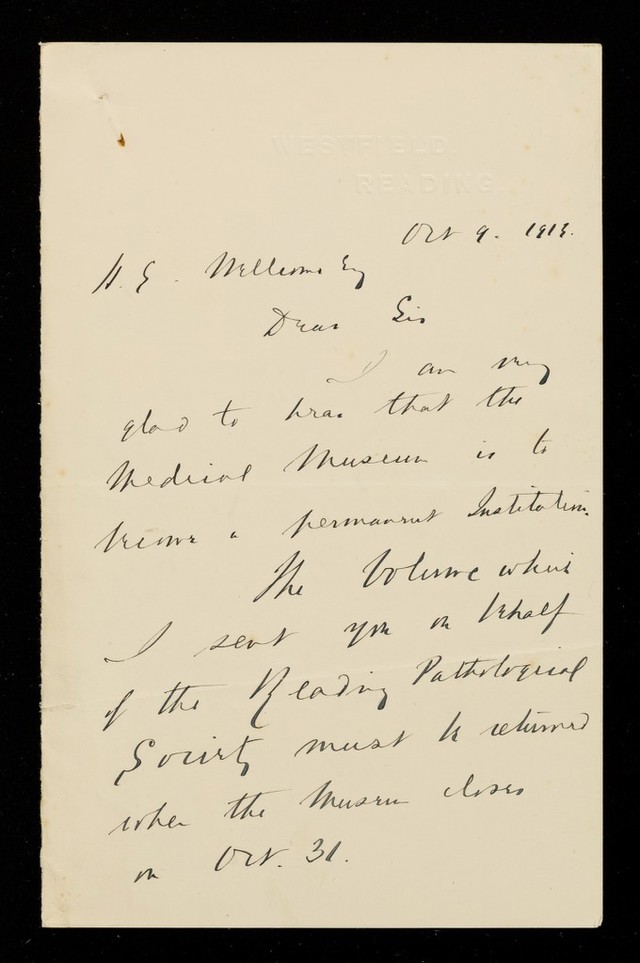 WESTFIELD,
READING.
Oct 9. 1913.
H. E. Williams Esq
Dear Sir
I am very
glad to hear that the
Medical Museum is to
become a permanent Institution.
The Volume which
I sent you on behalf
of the Reading Pathological
Society must be returned
when the Museum closes
on Oct. 31.